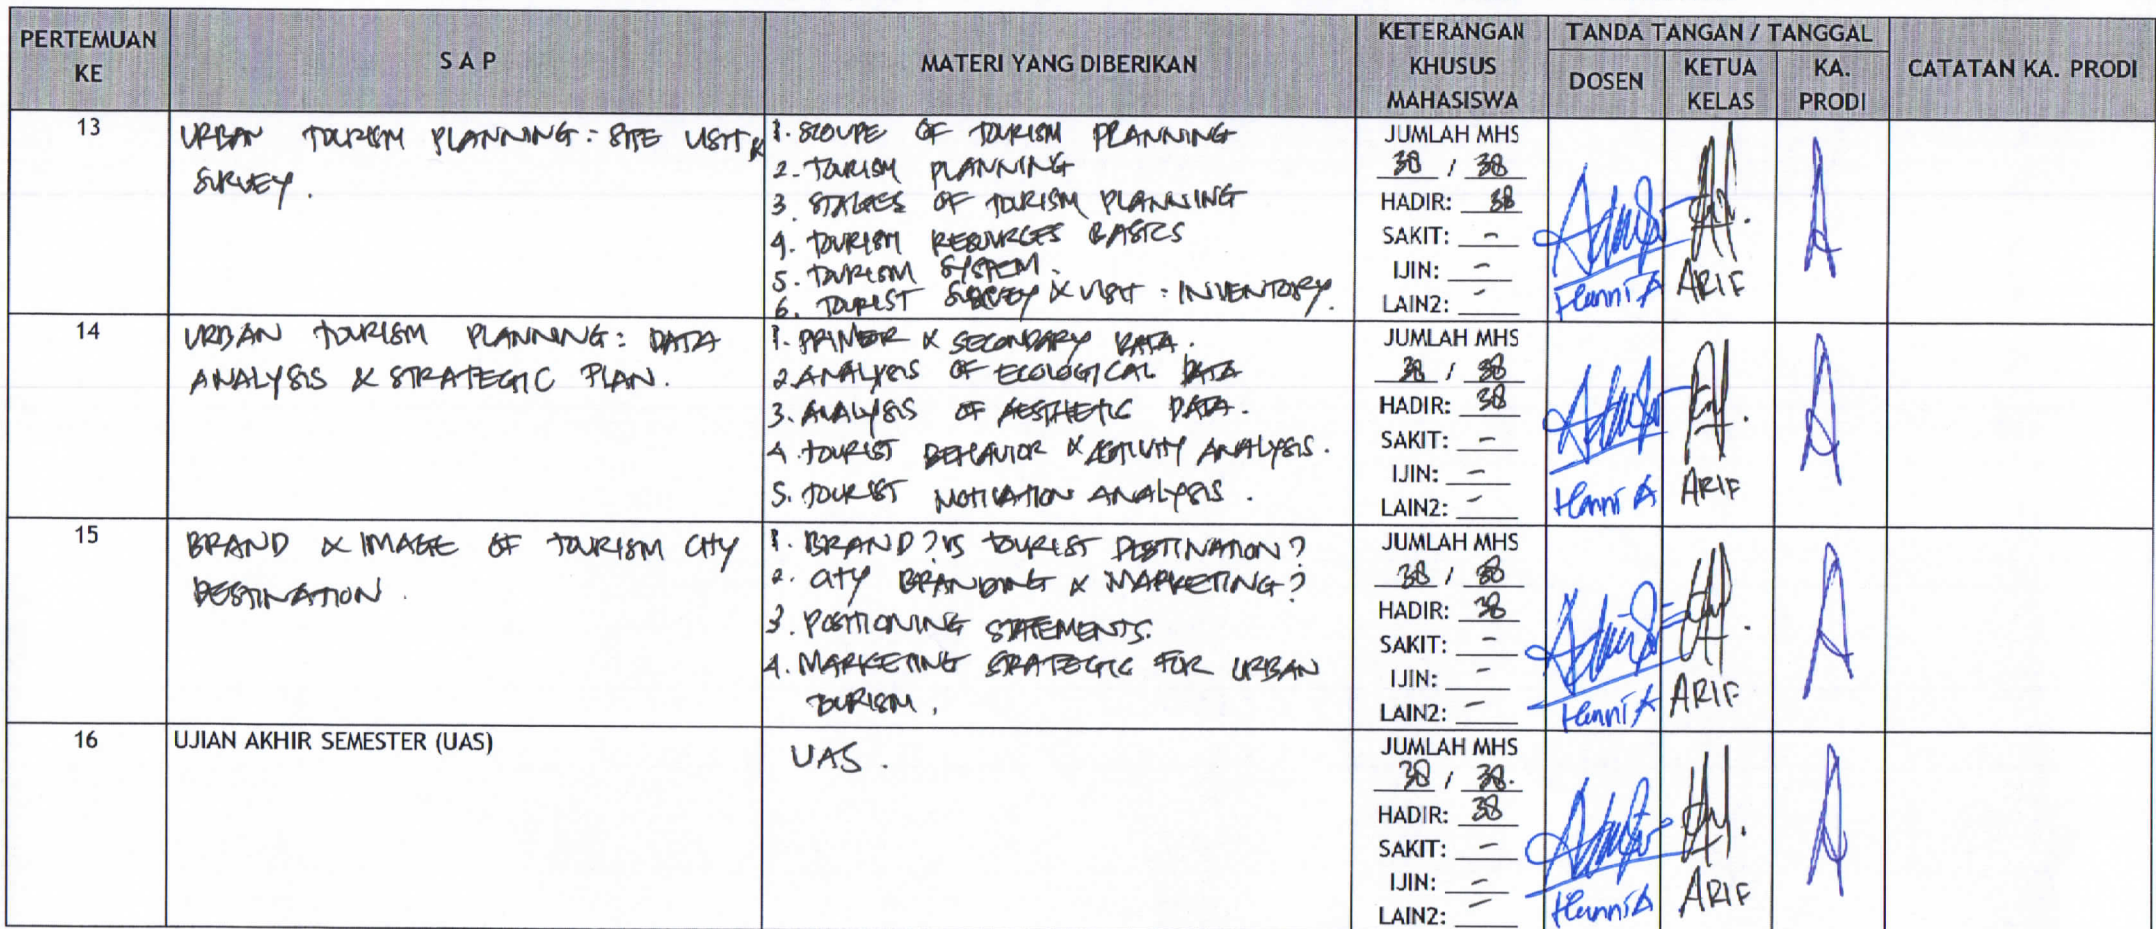 PERTEMUAN KE
S A P
MATERI YANG DIBERIKAN
KETERANGAN KHUSUS MAHASISWA
TANDA TANGAN / TANGGAL
DOSEN
KETUA KELAS
KA. PRODI
CATATAN KA. PRODI
13
URBAN TOURISM PLANNING: SITE VISIT &
SURVEY.
1. SCOUPE OF TOURISM PLANNING
2. TOURISM PLANNING
3. STAGES OF TOURISM PLANNING
4. TOURISM RESOURCES BASICS
5. TOURISM SYSTEM.
6. TOURIST SURVEY & VISIT : INVENTORY.
JUMLAH MHS
38 / 38
HADIR: 38
SAKIT: -
IJIN: -
LAIN2: -
Hanni A
ARIF
14
URBAN TOURISM PLANNING: DATA
ANALYSIS & STRATEGIC PLAN.
1. PRIMER & SECONDARY DATA.
2. ANALYSIS OF ECOLOGICAL DATA
3. ANALYSIS OF AESTHETIC DATA.
4. TOURIST BEHAVIOR & ACTIVITY ANALYSIS.
5. TOURIST MOTIVATION ANALYSIS.
JUMLAH MHS
38 / 38
HADIR: 38
SAKIT: -
IJIN: -
LAIN2: -
Hanni A
ARIF
15
BRAND & IMAGE OF TOURISM CITY
DESTINATION.
1. BRAND? IS TOURIST DESTINATION?
2. CITY BRANDING & MARKETING?
3. POSITIONING STATEMENTS.
4. MARKETING STRATEGIC FOR URBAN
TOURISM.
JUMLAH MHS
38 / 38
HADIR: 38
SAKIT: -
IJIN: -
LAIN2: -
Hanni A
ARIF
16
UJIAN AKHIR SEMESTER (UAS)
UAS.
JUMLAH MHS
38 / 38.
HADIR: 38
SAKIT: -
IJIN: -
LAIN2: -
Hanni A
ARIF